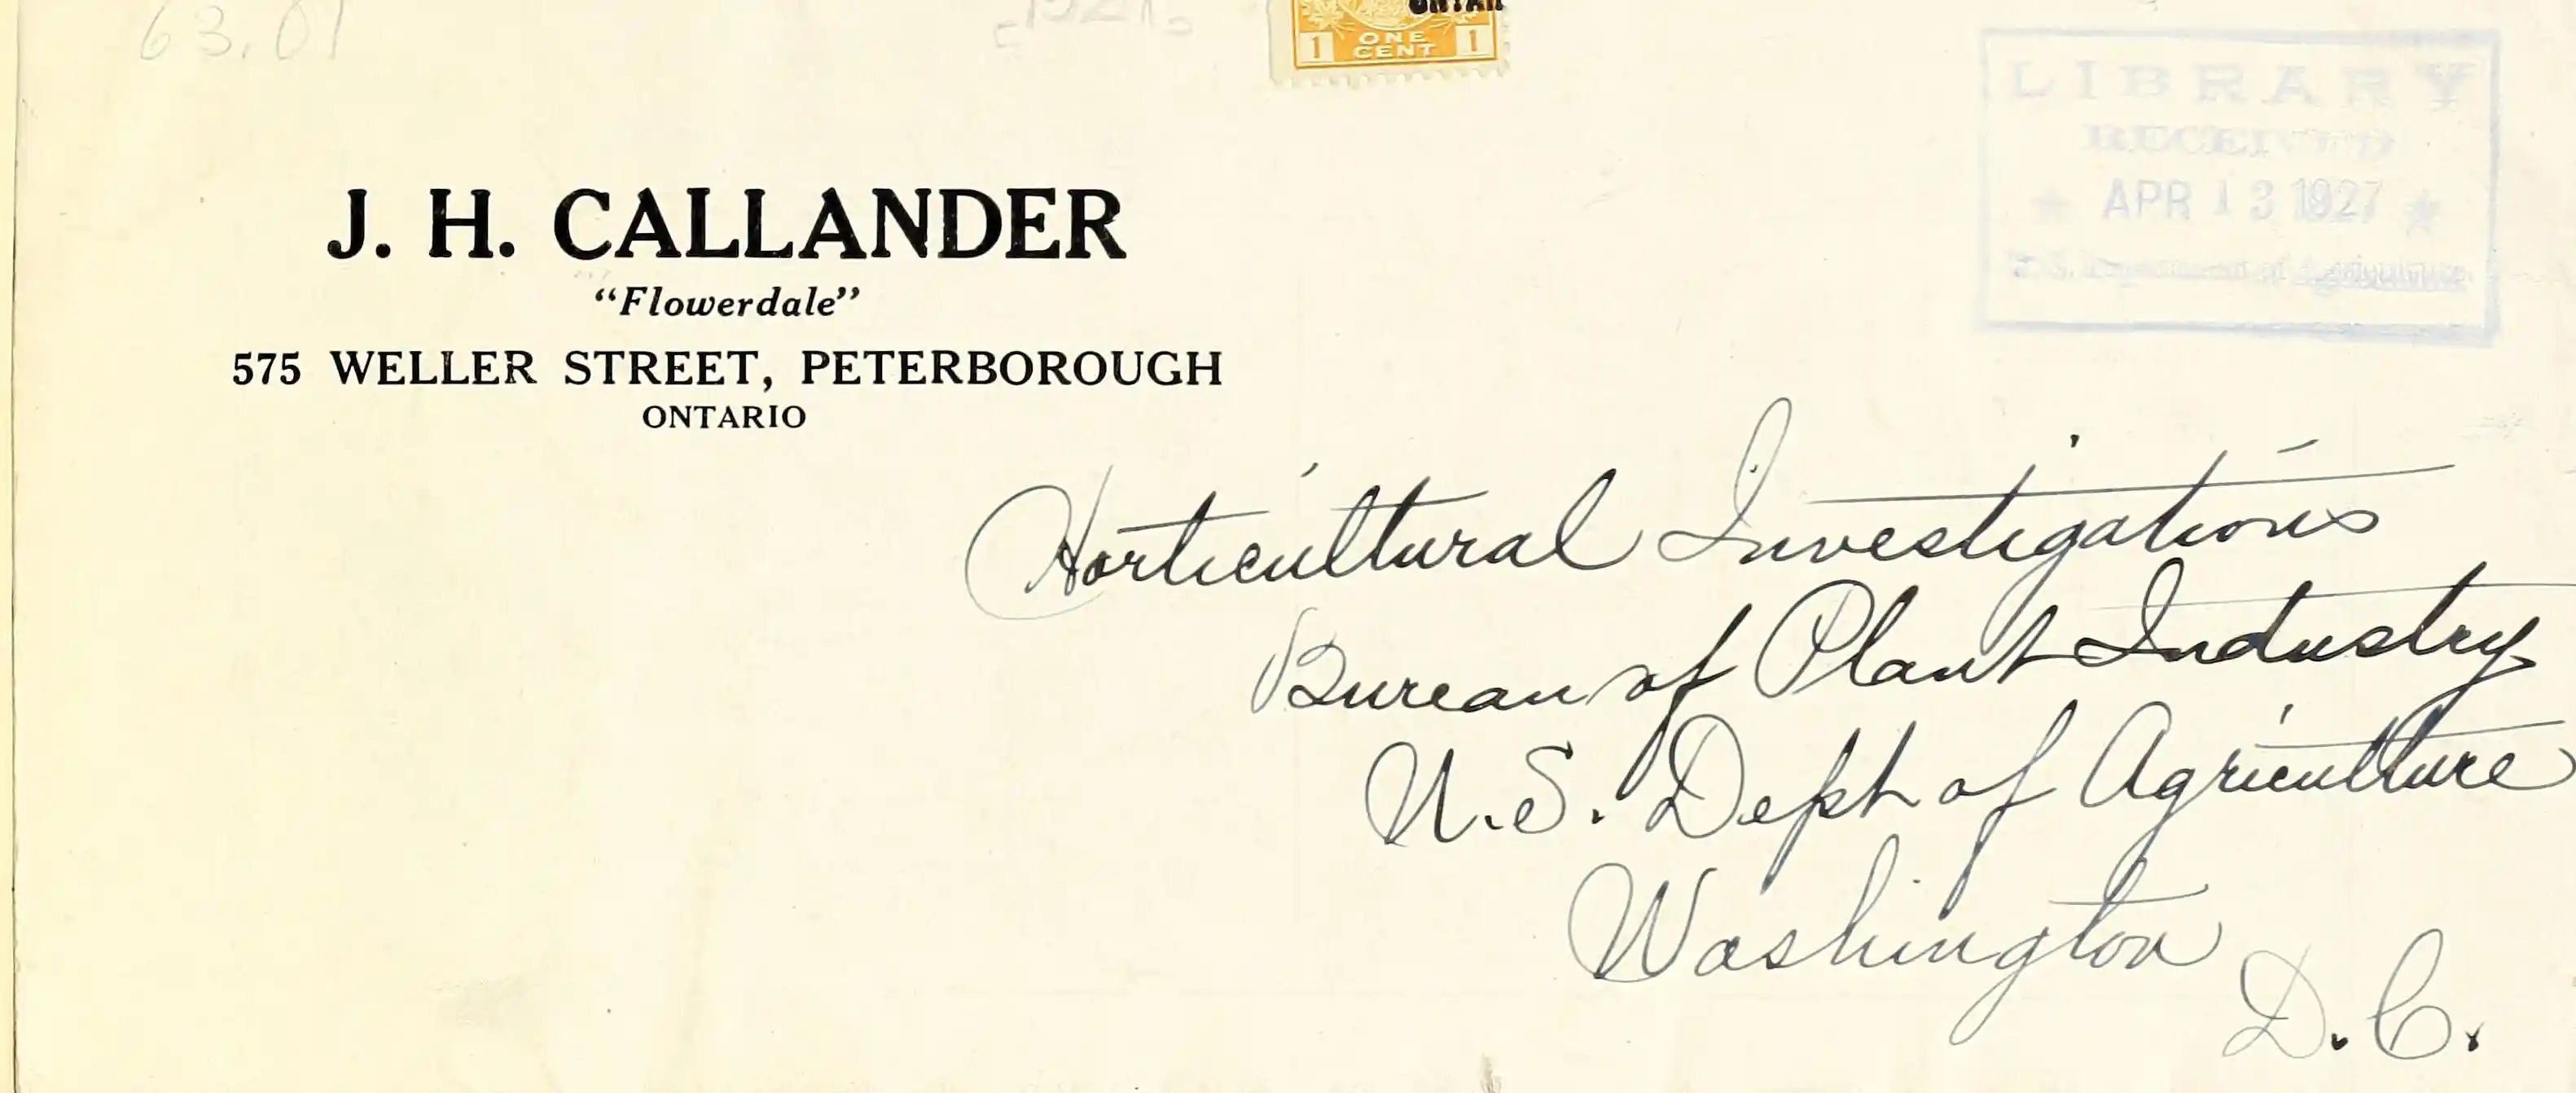 63.01
1927
ONTAR
1 ONE CENT 1
LIBRARY
RECEIVED
★ APR 13 1927 ★
U. S. Department of Agriculture
J. H. CALLANDER
“Flowerdale”
575 WELLER STREET, PETERBOROUGH
ONTARIO
Horticultural Investigations
Bureau of Plant Industry
U.S. Dept of Agriculture
Washington
D.C.